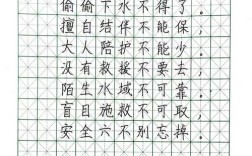 偷偷下水不得了。
擅自结伴不能保，
大人陪护不能少。
没有救援不要去，
陌生水域不可靠。
盲目施救不可取，
安全六不别忘掉。